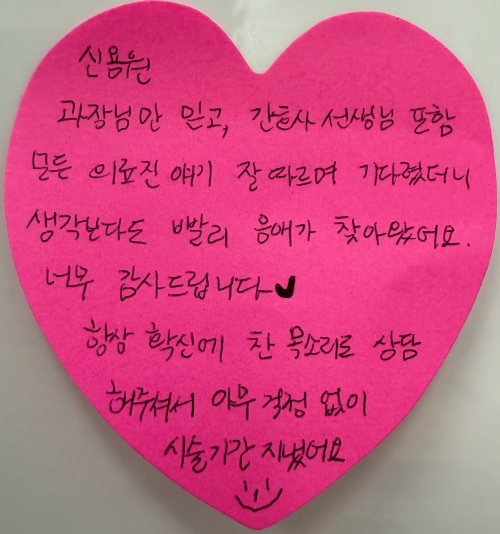 신용원
과장님만 믿고, 간호사 선생님 포함
모든 의료진 얘기 잘 따르며 기다렸더니
생각보다도 빨리 응애가 찾아왔어요.
너무 감사드립니다♥
항상 확신에 찬 목소리로 상담
해주셔서 아무 걱정 없이
시술기간 지냈어요